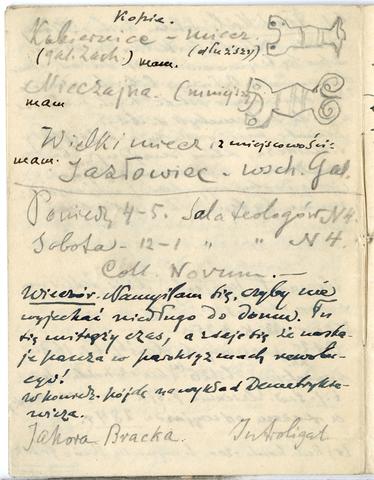 Kopia.
Kabiernice - miecz.
(gal. Zach.) mam. (dłuższy)
Nieczajna. (mniejszy
mam
Wielki miecz z miejscowości-
mam. Jazłowiec - wsch. Gal.
Poniedz. 4-5. Sala teologów N 4.
Sobota - 12-1 " " N 4.
Coll. Novum. -
Wieczór. Namyślam się, czyby nie
wyjechać niedługo do domu. Tu
się mitręży czas, a zdaje się że nasta-
je pauza w paroksyzmach rewolu-
cyj!
W poniedz. pójdę na wykład Demetrykie-
wicza.
Jakóra Bracka. Introligat